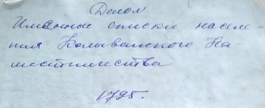 Декол
Именные списки населе-
ния Колыванского На
местничества
1795.